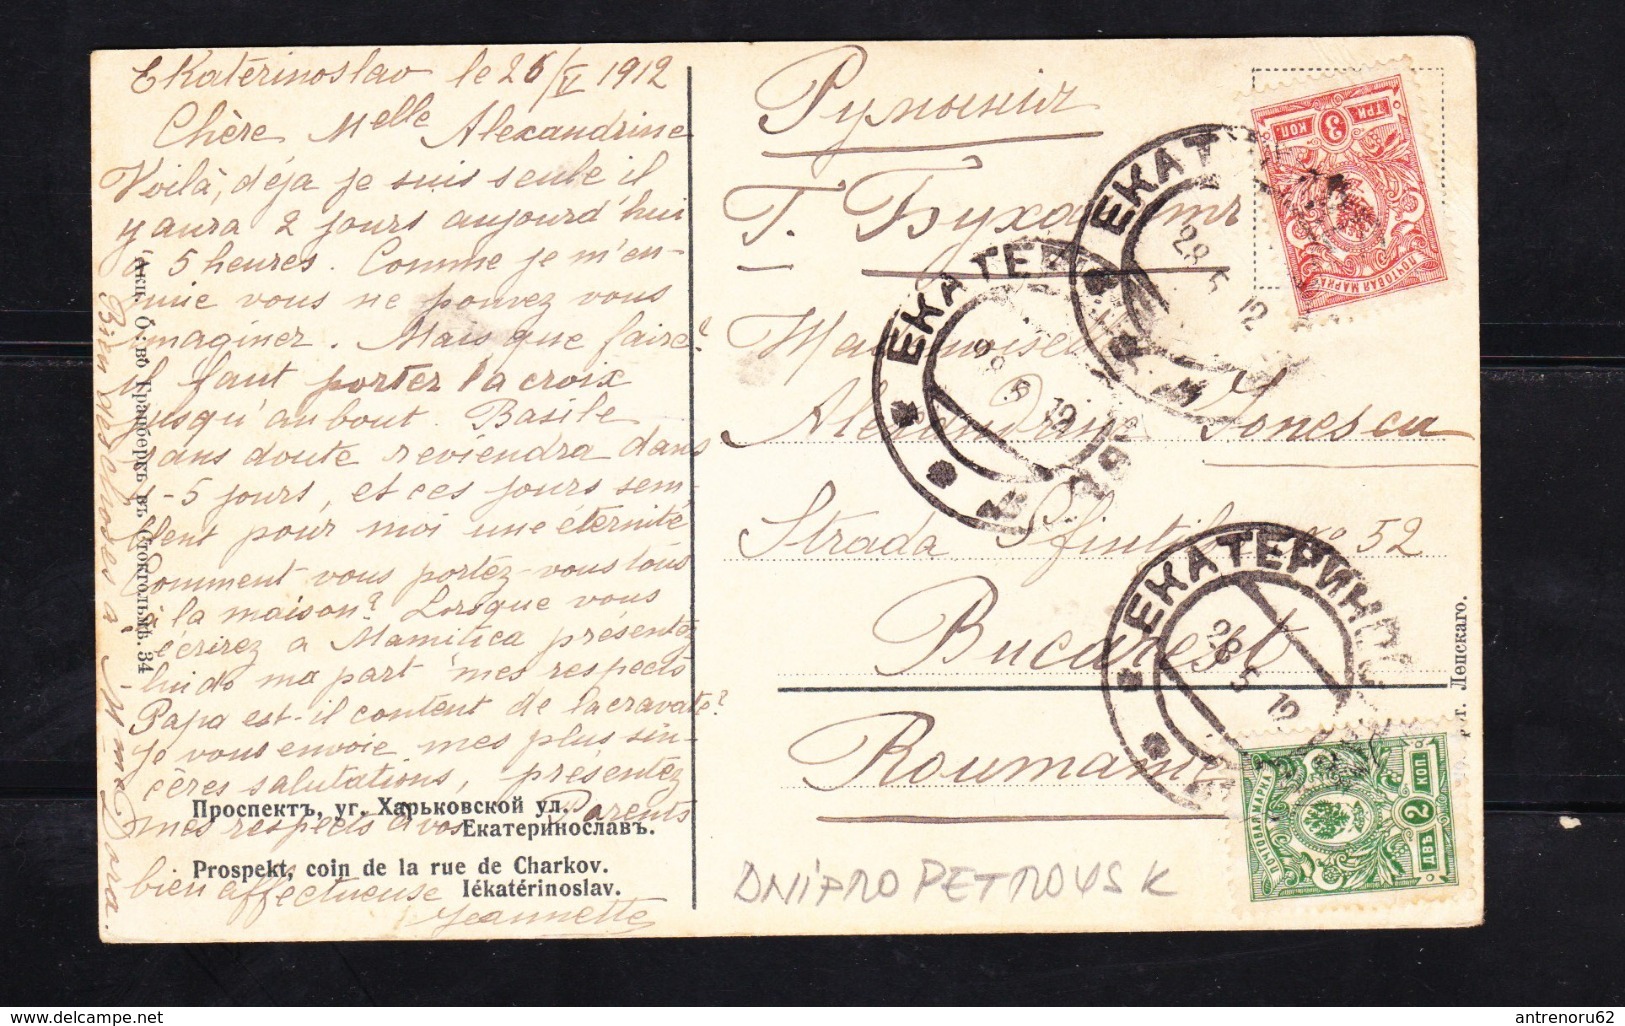 Ekatérinoslav le 26/V 1912
Chère Melle Alexandrine
Voilà, déja je suis seule il
y aura 2 jours aujourd'hui
à 5 heures. Comme je m'en-
nuie vous ne pouvez vous
imaginer. Mais que faire?
il faut portez la croix
jusqu'au bout. Basile
sans doute reviendra dans
4-5 jours, et ces jours sem-
blent pour moi une éternité
Comment vous portez-vous tous
à la maison? Lorsque vous
écrirez a Mamitica présentez
lui de ma part mes respects
Papa est-il content de la cravate?
Je vous envoie mes plus sin-
cères salutations, présentez
mes respects à vos Parents
bien affectueuse
Jeannette
Bien des choses à Mme Dora
Акц. О-во Гранбергъ въ Стокгольмѣ. 34
Проспектъ, уг. Харьковской ул.
Екатеринославъ.
Prospekt, coin de la rue de Charkov.
Iékatérinoslav.
Румынія
Г. Бухарестъ
Mademoiselle
Alexandrine Ionescu
Strada Sfintilor no 52
Bucarest
Roumanie
DNIPROPETROVSK
Лепскаго.
ЕКАТЕ
28 5 12
ЕКАТ
28 5 12
ЕКАТЕРИНОС
28 5 12
ТРИ 3 КОП.
ПОЧТОВАЯ МАРКА
ПОЧТОВАЯ МАРКА
ДВѢ 2 КОП.
antrenoru62
delcampe.net